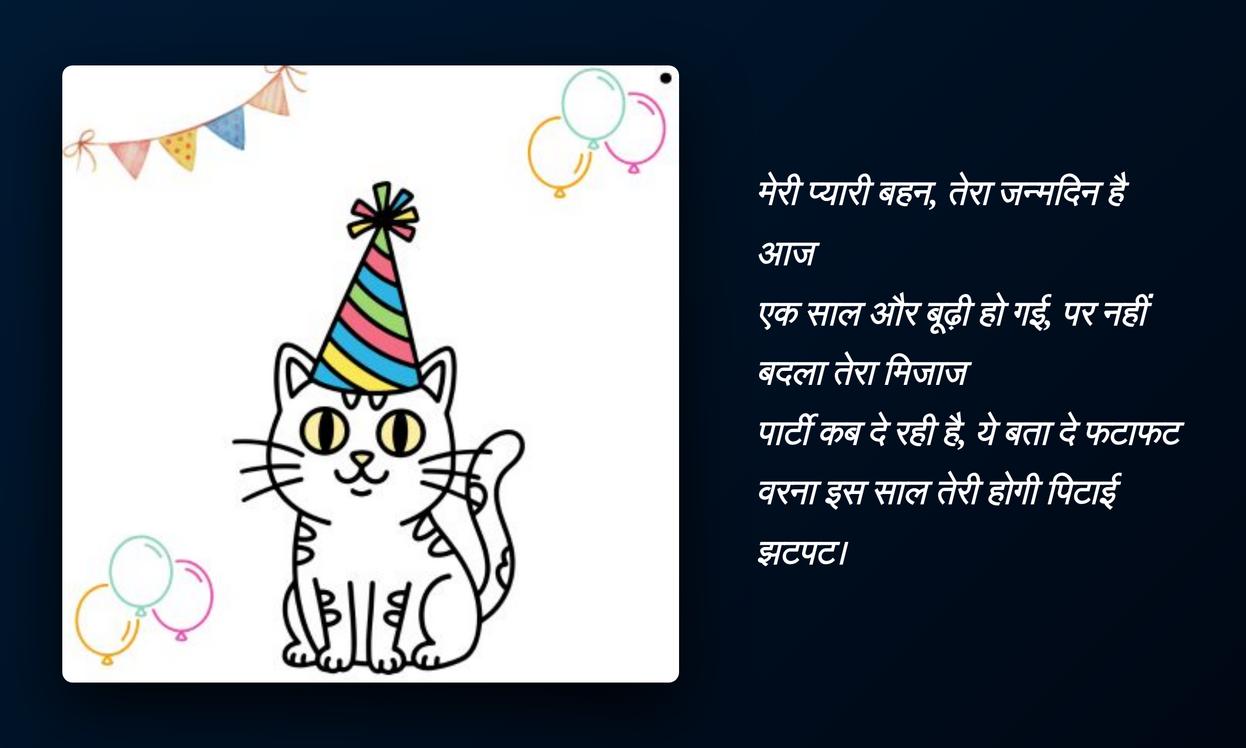 मेरी प्यारी बहन, तेरा जन्मदिन है
आज
एक साल और बूढ़ी हो गई, पर नहीं
बदला तेरा मिजाज
पार्टी कब दे रही है, ये बता दे फटाफट
वरना इस साल तेरी होगी पिटाई
झटपट।